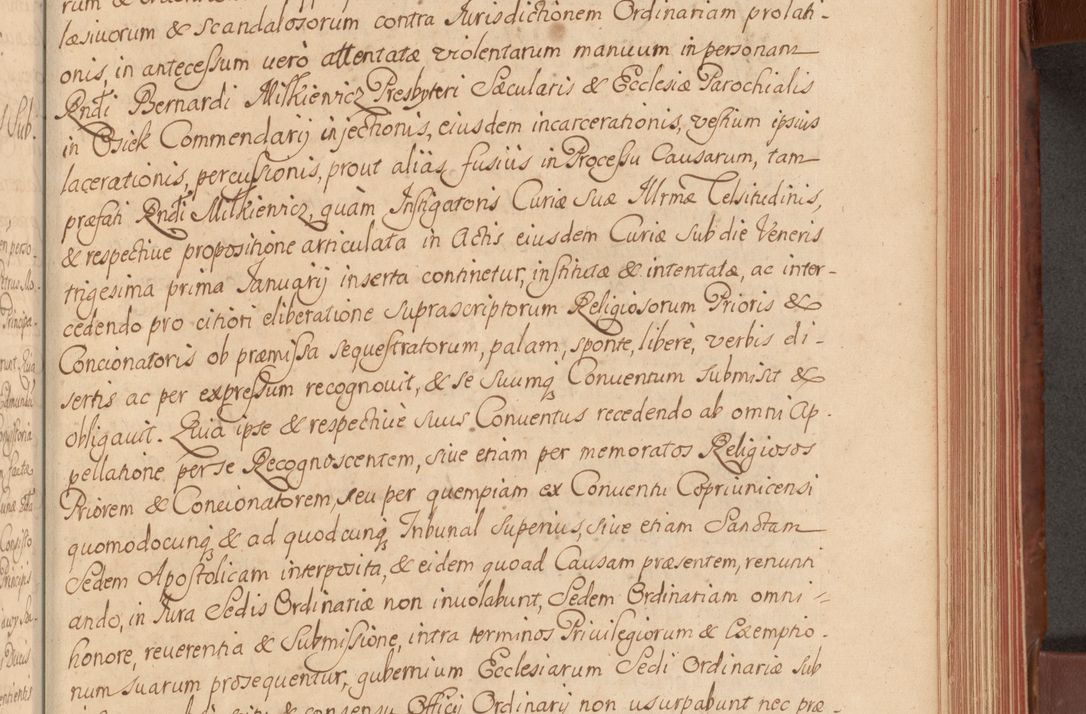 læsivorum & scandalosorum contra Jurisdictionem Ordinariam prolati-
onis, in antecessum verò attentatæ violentarum manuum in personam
Rndi Bernardi Milkiewicz Presbyteri Sæcularis & Ecclesiæ Parochialis
in Osiek Commendarij injectionis, eiusdem incarcerationis, vestium ipsius
lacerationis, percussionis, prout aliàs fusiùs in Processu Causarum, tam
præfati Rndi Milkiewicz, quàm Instigatoris Curiæ suæ Illrmæ Celsitudinis,
& respective propositione articulata in Actis eiusdem Curiæ sub die Veneris
trigesima prima Januarij inserta continetur, institutæ & intentatæ, ac inter-
cedendo pro citiori eliberatione suprascriptorum Religiosorum Prioris &
Concionatoris ob præmissa sequestratorum, palam, sponte, liberè, verbis di-
sertis ac per expressum recognouit, & se suumq Conuentum submisit &
obligauit. Quia ipse & respectivè suus Conuentus recedendo ab omni Ap-
pellatione per se Recognoscentem, siue etiam per memoratos Religiosos
Priorem & Concionatorem, seu per quempiam ex Conuentu Copriunicensi
quomodocunq & ad quodcunq Tribunal superius, siue etiam Sanctam
Sedem Apostolicam interposita, & eidem quoad Causam præsentem, renunti
ando, in Jura Sedis Ordinariæ non inuolabunt, Sedem Ordinariam omni
honore, reuerentia & Submissione, intra terminos Privilegiorum & Exemptio-
num suarum prosequentur, gubernium Ecclesiarum Sedi Ordinariæ sub
& consensu Officij Ordinarij non usurpabunt nec præ-